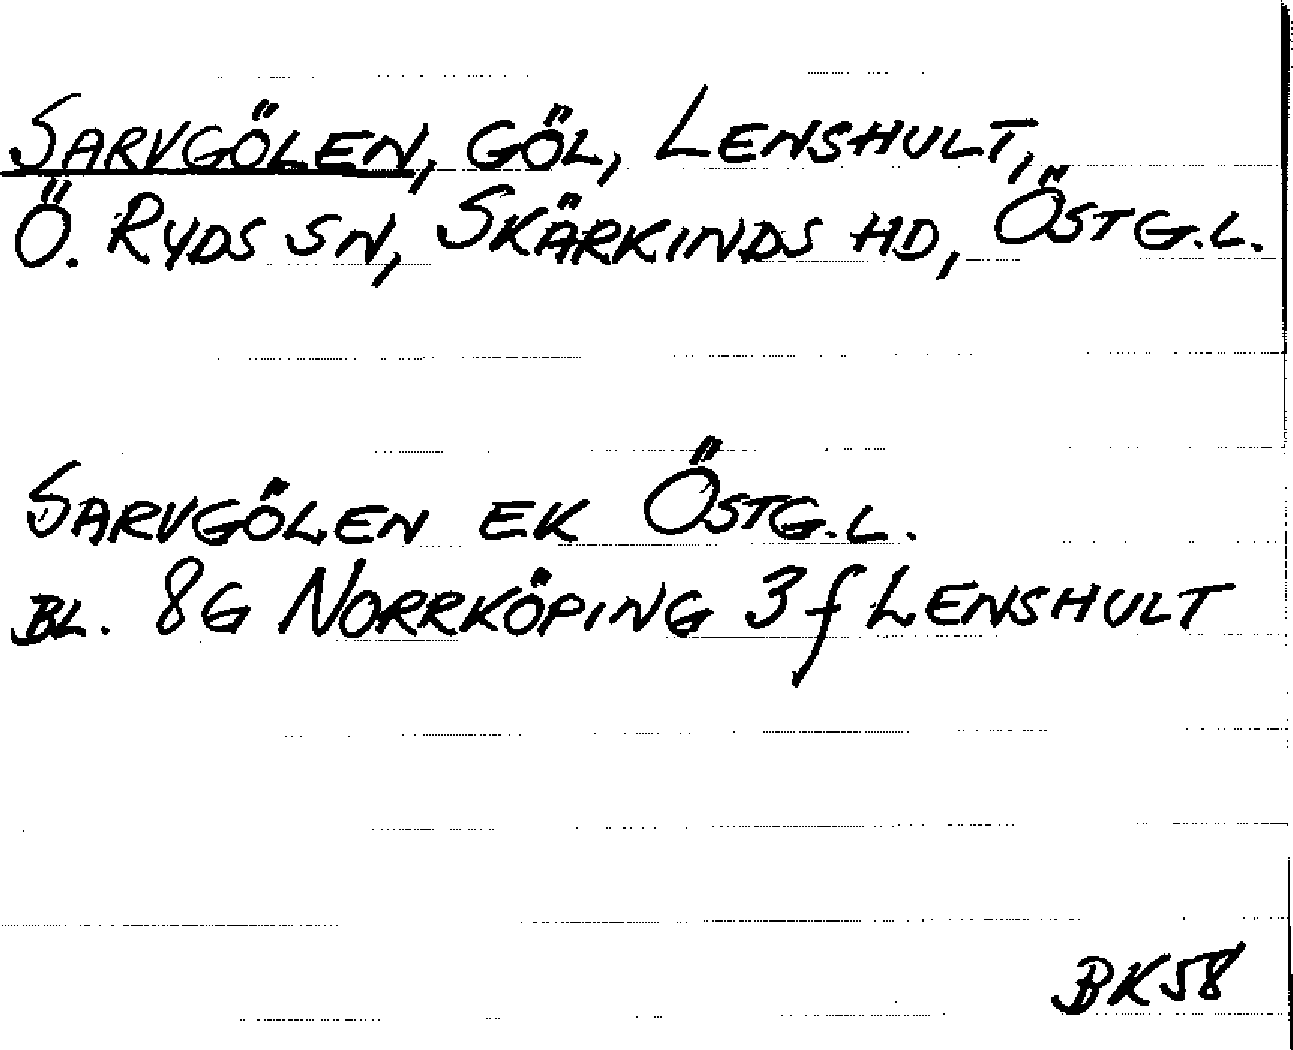 SARVGÖLEN, GÖL, LENSHULT,
Ö. RYDS SN, SKÄRKINDS HD, ÖSTG.L.
SARVGÖLEN EK ÖSTG.L.
BL. 8G NORRKÖPING 3f LENSHULT
BK58